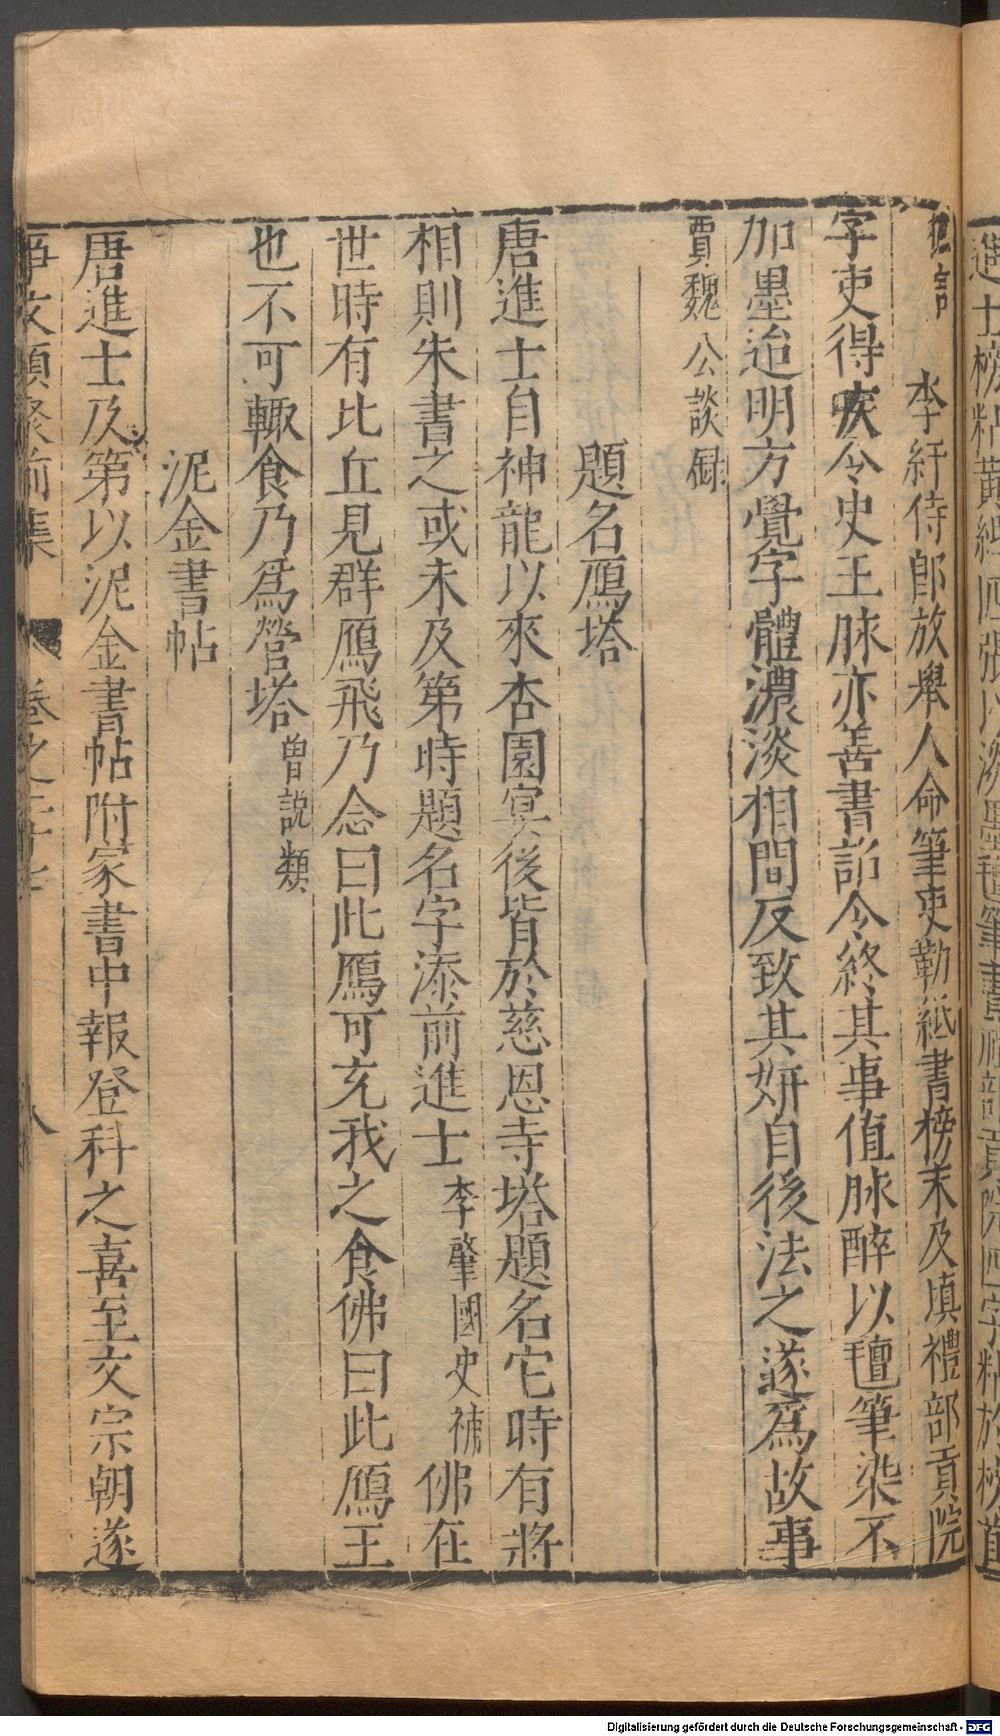 進士榜粘黃紙四張以淡墨氊筆書禮部貢院四字粘於榜首
李紆侍郎放舉人命筆吏勒紙書榜未及填禮部貢院
字吏得疾令史王脉亦善書詔令終其事值脉醉以氊筆染不
加墨迨明方覺字體濃淡相間反致其妍自後法之遂爲故事
賈魏公談録
題名鴈塔
唐進士自神龍以來杏園宴後皆於慈恩寺塔題名它時有將
相則朱書之或未及第時題名字添前進士李肇國史補佛在
世時有比丘見群鴈飛乃念曰此鴈可充我之食佛曰此鴈王
也不可輙食乃爲營塔曽説類
泥金書帖
唐進士及第以泥金書帖附家書中報登科之喜至文宗朝遂
事文類聚前集 卷之二十七 八
Digitalisierung gefördert durch die Deutsche Forschungsgemeinschaft - DFG